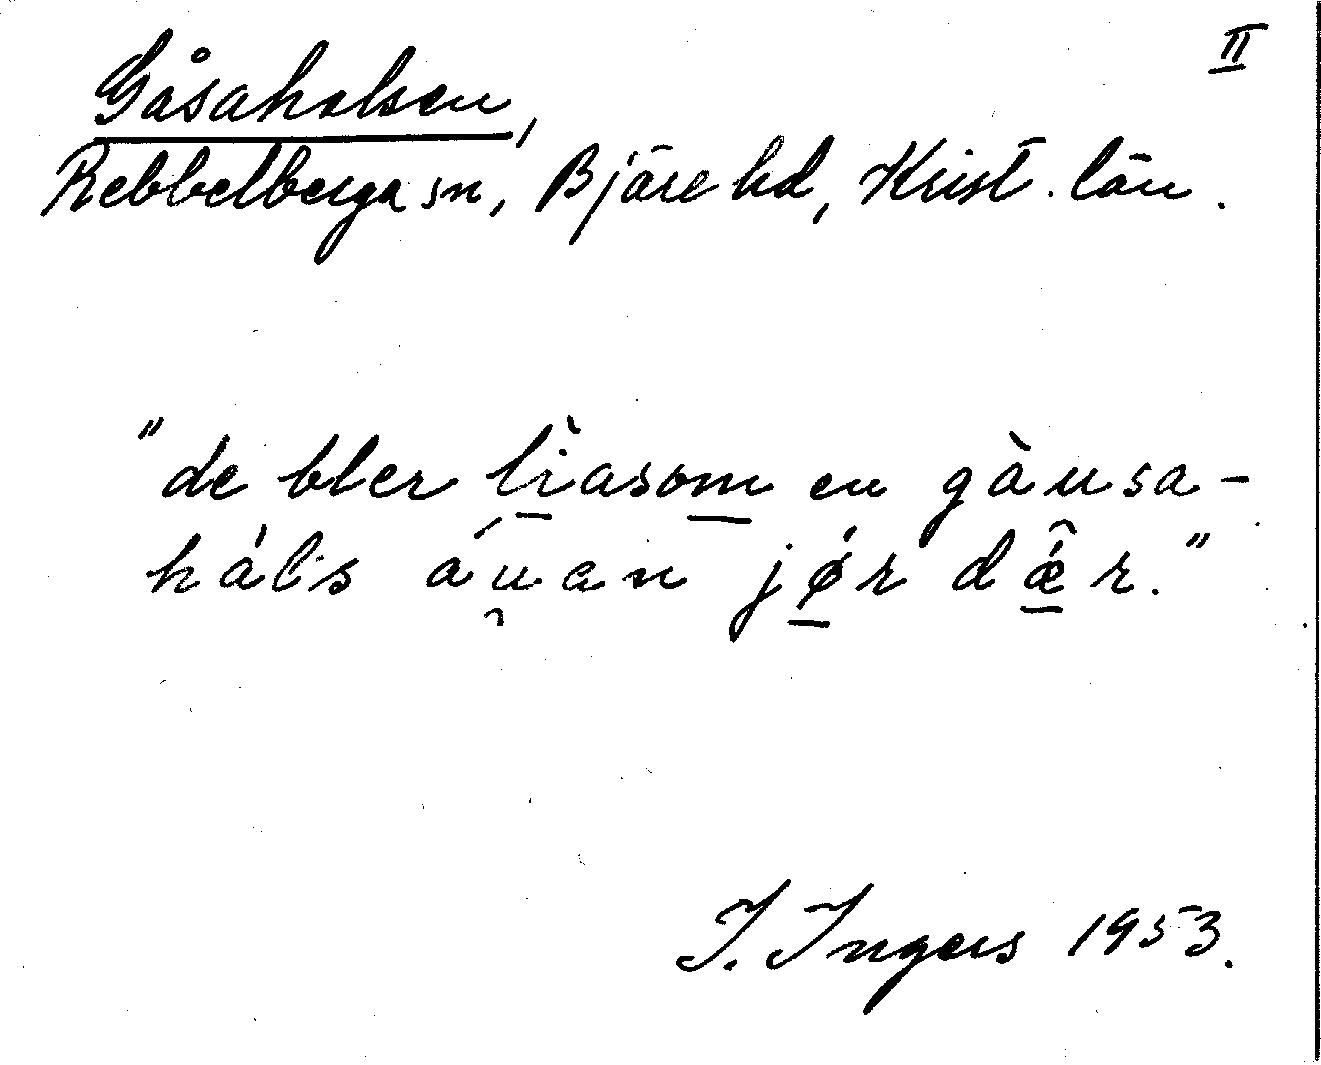 II
Gåsahalsen,
Rebbelberga sn, Bjäre hd, Krist. län.
"de bler lìasom en gàusa-
háls áu̯an jǿr dæ̂r."
I. Ingers 1953.